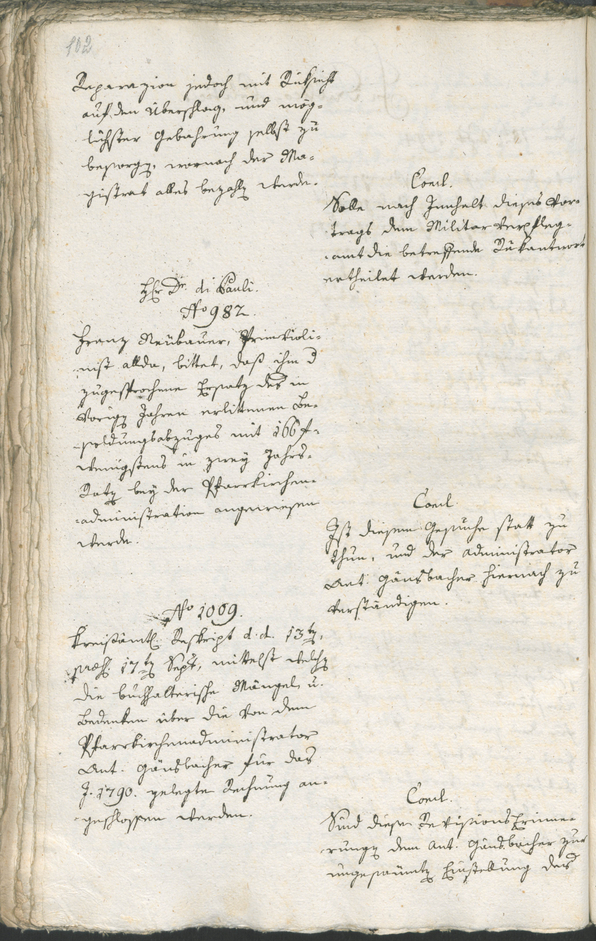 102
Reparazion jedoch mit Rüksicht
auf den Überschlag, und mög-
lichster Gebahrung selbst zu
besorgen, wornach der Ma-
gistrat alles bezahlen werde.
Concl.
Solle nach Innhalt dieses Vor-
trags dem Militar Verpfleg-
amt die betreffende Rükantwort
ertheilet werden.
Hr. Dr. di Pauli.
No 982.
Franz Neubauer, Primvioli-
nist allda, bittet, daß ihm d
zugesprochene Ersatz des in
vorigen Jahren erlittenen Be-
soldungsabzuges mit 166 f.
wenigstens in zwey Jahrs-
Raten bey der Pfarrkirchen-
administration angewiesen
werde.
Concl
Ist diesem Gesuche statt zu
thun, und der Administrator
Ant. Gänsbacher hiernach zu
verständigen.
No 1009.
Kreisämtl. Reskript d. d. 13ten,
praes. 17ten Sept, mittelst welchen
die buchhalterische Mängel, u.
Bedenken über die von dem
Pfarrkirchenadministrator
Ant. Gänsbacher für das
J. 1790. gelegte Rechnung an-
geschlossen werden.
Concl.
Sind diese Revisions Erinne-
rungen dem Ant. Gänsbacher zur
ungesäumten Einstellung des